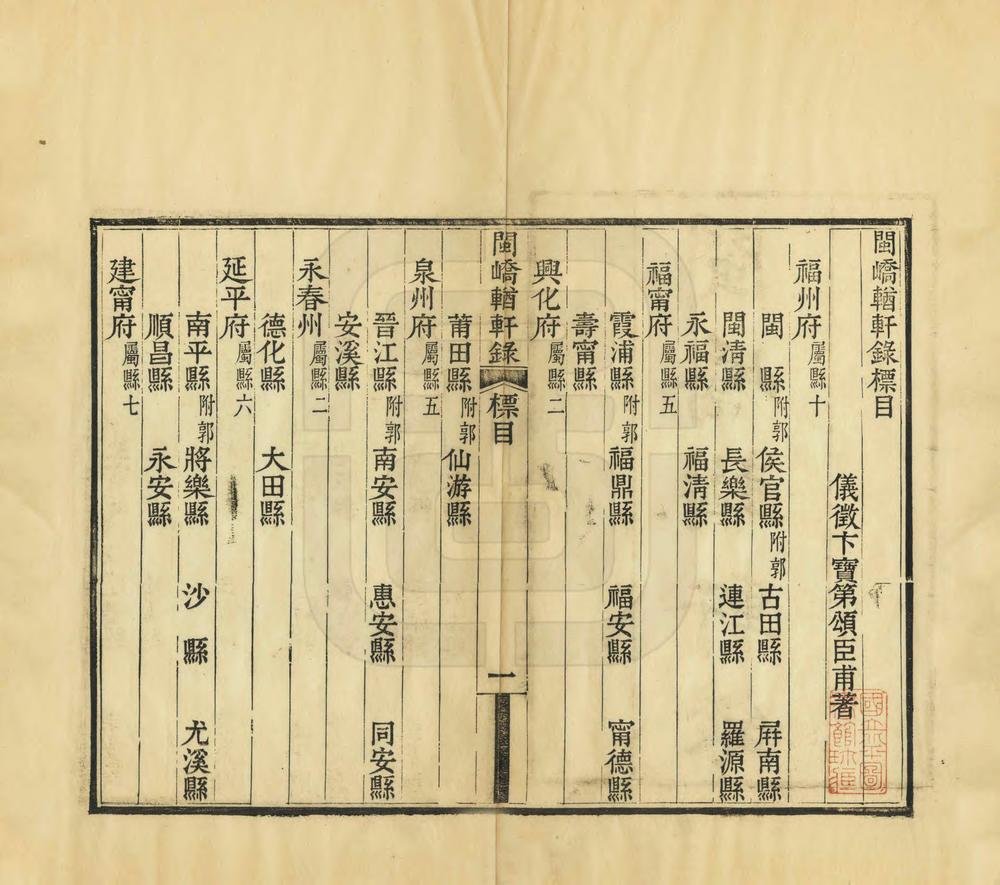 閩嶠輶軒錄標目
儀徵卞寶第頌臣甫著
福州府屬縣十
閩縣附郭 侯官縣附郭 古田縣 屛南縣
閩淸縣 長樂縣 連江縣 羅源縣
永福縣 福淸縣
福甯府屬縣五
霞浦縣附郭 福鼎縣 福安縣 甯德縣
壽甯縣
興化府屬縣二
閩嶠輶軒錄 標目 一
莆田縣附郭 仙游縣
泉州府屬縣五
晉江縣附郭 南安縣 惠安縣 同安縣
安溪縣
永春州屬縣二
德化縣 大田縣
延平府屬縣六
南平縣附郭 將樂縣 沙縣 尤溪縣
順昌縣 永安縣
建甯府屬縣七